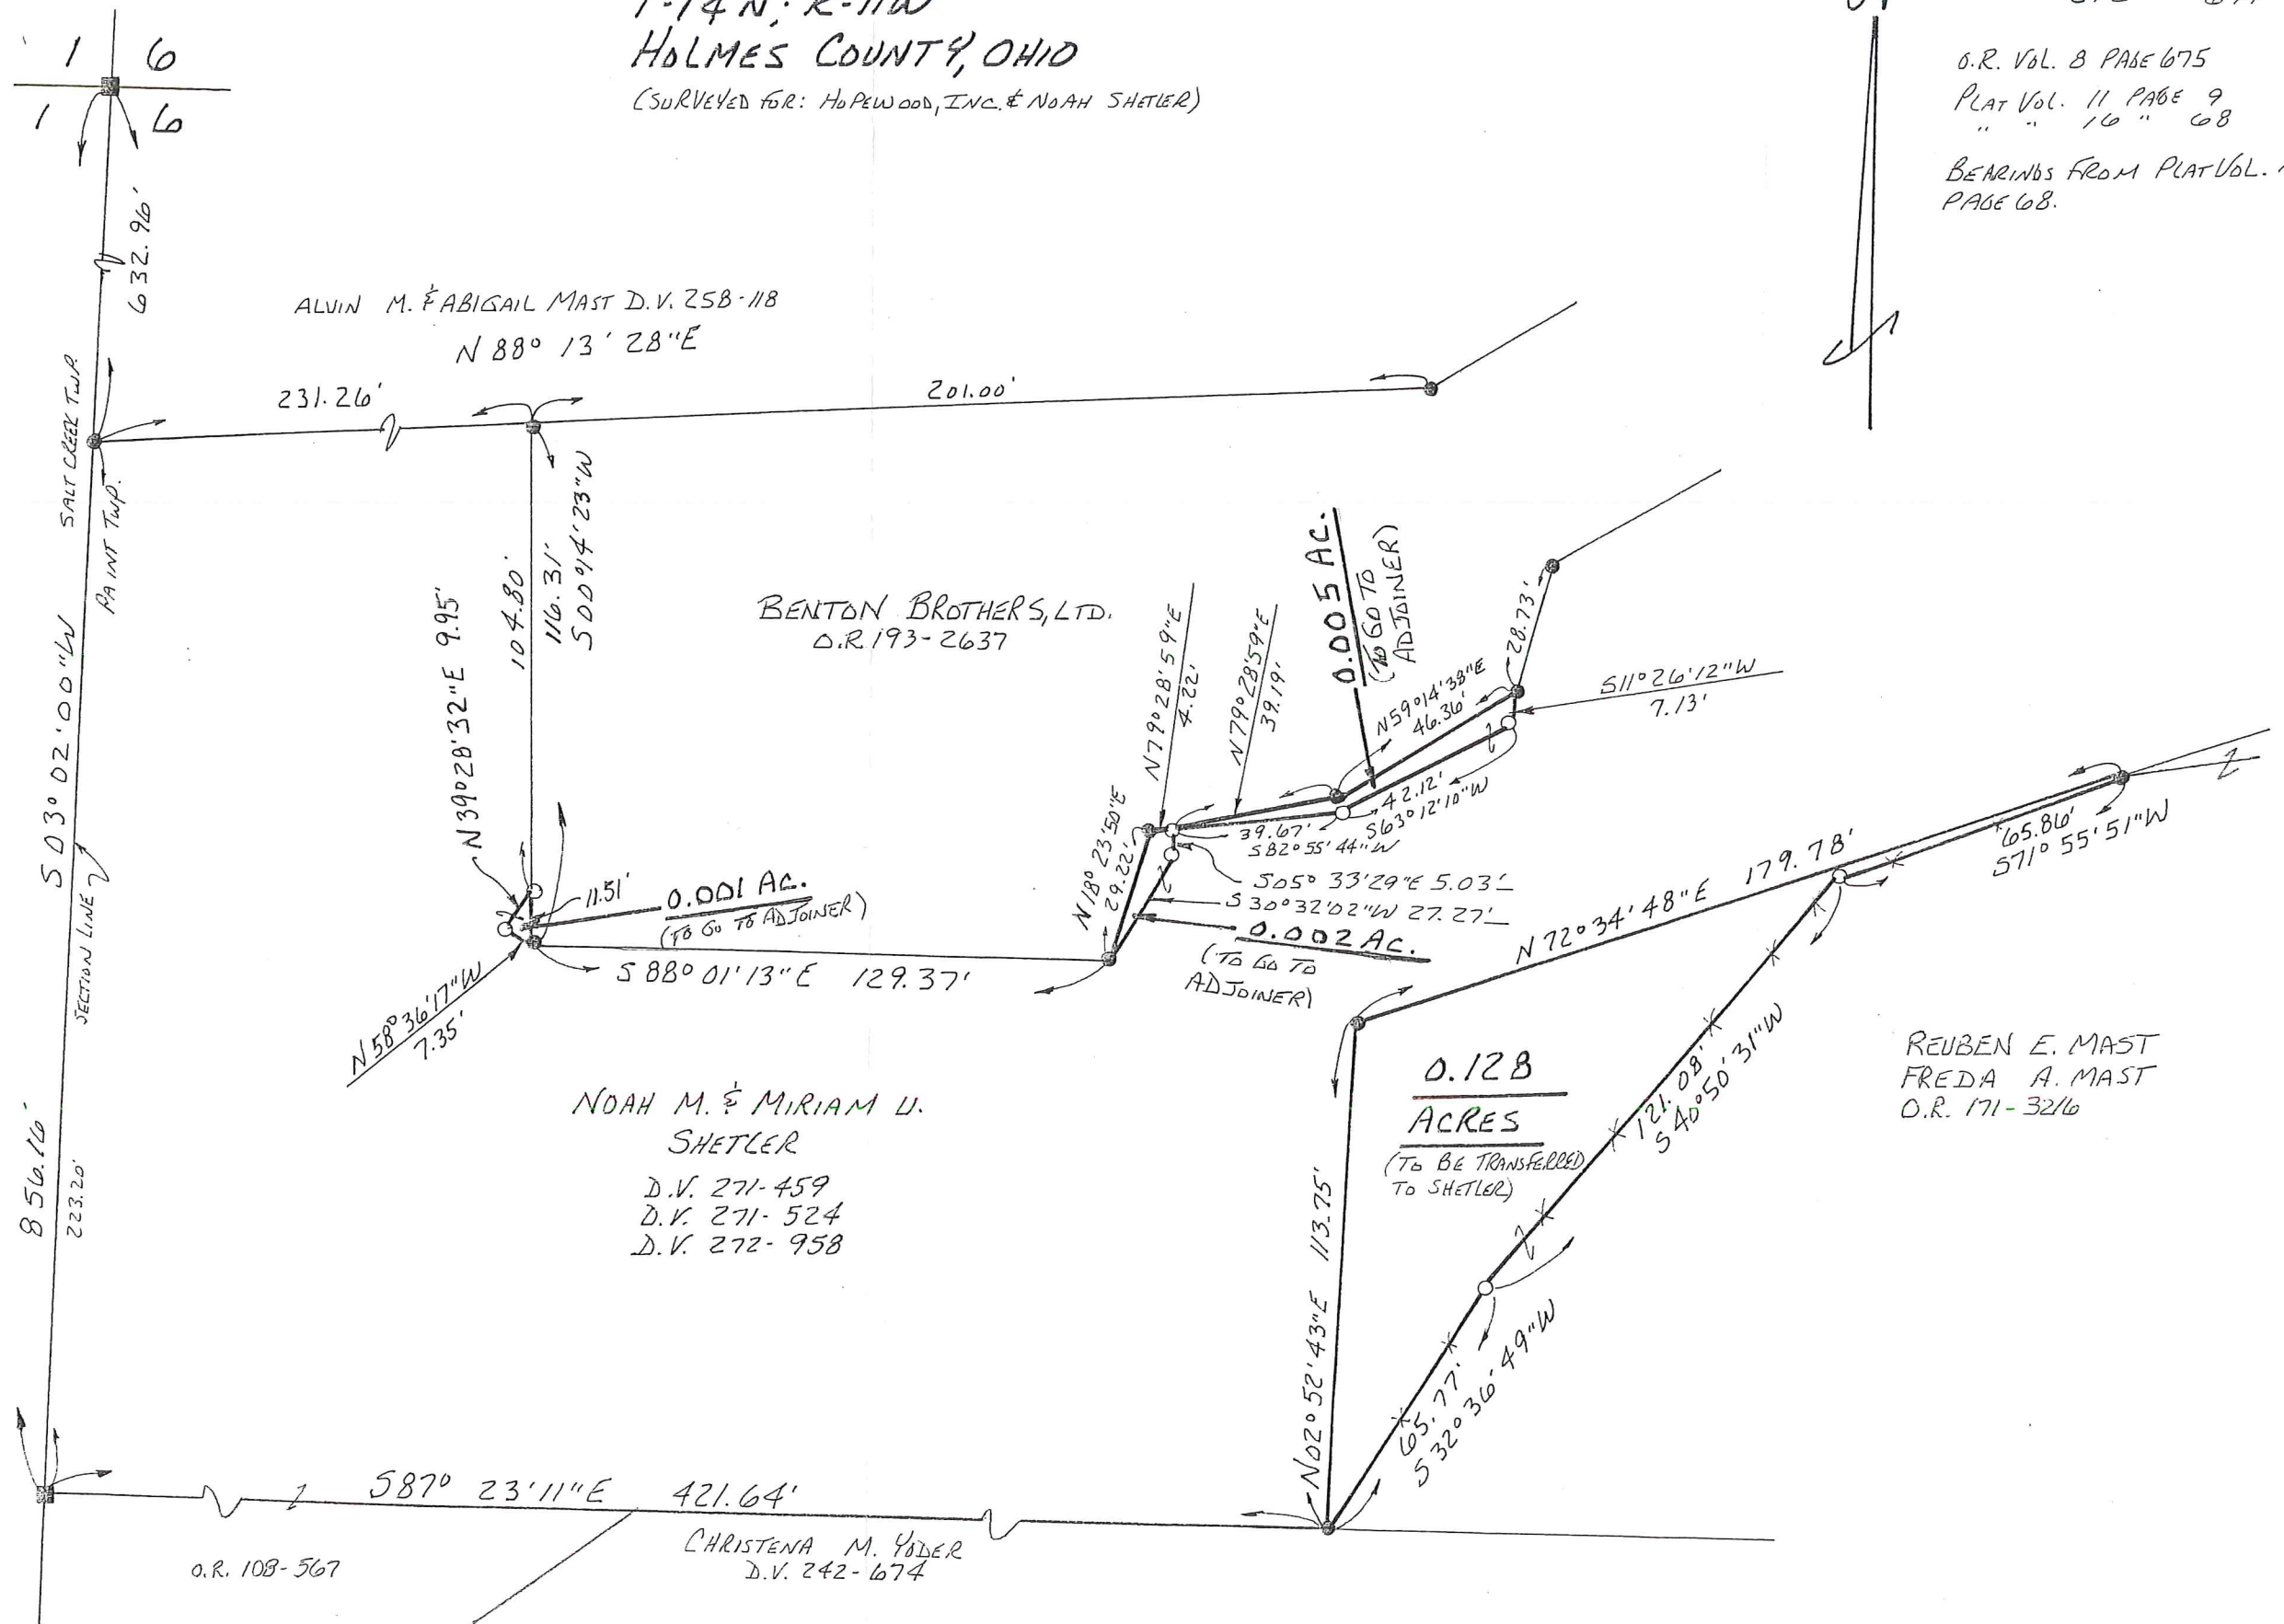 T-14 N; R-11W
HOLMES COUNTY, OHIO
(SURVEYED FOR: HOPEWOOD, INC. & NOAH SHETLER)
O.R. VOL. 8 PAGE 675
PLAT VOL. 11 PAGE 9
" " 16 " 68
BEARINGS FROM PLAT VOL.
PAGE 68.
1 6
1 6
632.96'
ALVIN M. & ABIGAIL MAST D.V. 258-118
N 88° 13' 28"E
231.26'
201.00'
SALT CREEK TWP.
PAINT TWP.
S 03° 02' 00"W
SECTION LINE
856.16'
223.20'
104.80'
116.31'
S 00°14'23"W
N 39°28'32"E 9.95'
BENTON BROTHERS, LTD.
O.R. 193-2637
N79°28'59"E
4.22'
N79°28'59"E
39.19'
0.005 AC.
(TO GO TO
ADJOINER)
28.73'
N59°14'38"E
46.36'
S11°26'12"W
7.13'
42.12'
S63°12'10"W
39.67'
S82°55'44"W
N 18° 23'50"E
29.22'
S05° 33'29"E 5.03'
S 30°32'02"W 27.27'
0.002 AC.
(TO GO TO
ADJOINER)
11.51'
0.001 AC.
(TO GO TO ADJOINER)
S 88° 01' 13"E 129.37'
N58°36'17"W
7.35'
N 72° 34' 48"E 179.78'
65.86'
S71° 55' 51"W
NOAH M. & MIRIAM U.
SHETLER
D.V. 271-459
D.V. 271-524
D.V. 272-958
0.128
ACRES
(TO BE TRANSFERRED
TO SHETLER)
121.08'
S 40° 50' 31"W
REUBEN E. MAST
FREDA A. MAST
O.R. 171-3216
N02° 52' 43"E 113.75'
65.77'
S 32° 36' 49"W
S87° 23' 11"E 421.64'
CHRISTENA M. YODER
D.V. 242-674
O.R. 108-567